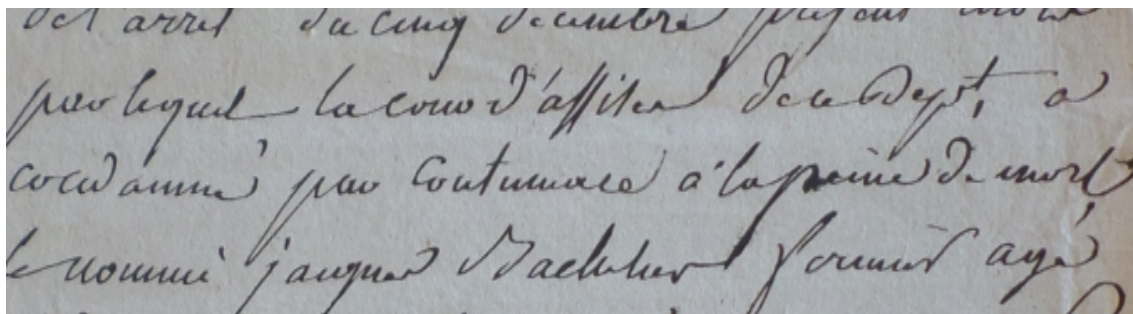 del'arret du cinq decembre present mois
par lequel la cour d'assises de ce Dept, a
condamné par contumace à la peine de mort
le nommé jacques Bachelier age